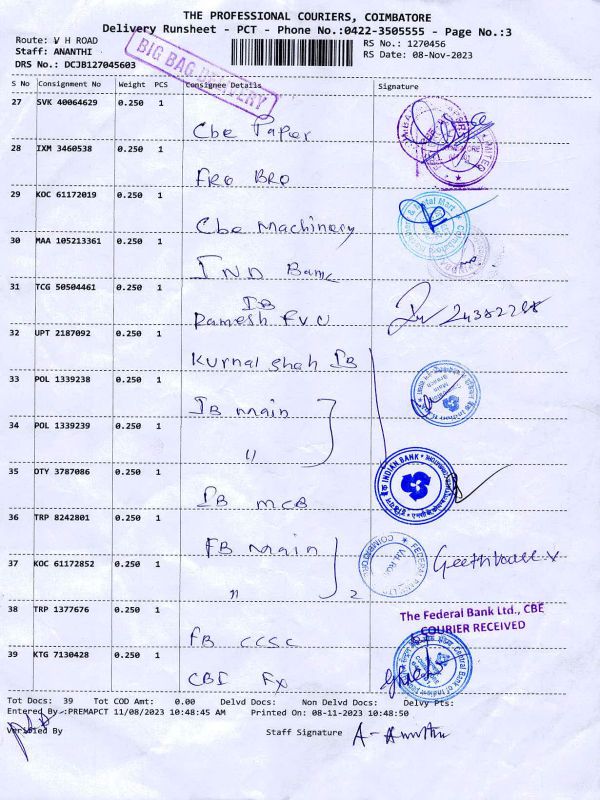 THE PROFESSIONAL COURIERS, COIMBATORE
Delivery Runsheet - PCT - Phone No.:0422-3505555 - Page No.:3
Route: V H ROAD
Staff: ANANTHI
DRS No.: DCJB127045603
RS No.: 1270456
RS Date: 08-Nov-2023
BIG BAG DELIVERY
S No Consignment No Weight PCS Consignee Details Signature
27 SVK 40064629 0.250 1
Cbe Paper
28 IXM 3460538 0.250 1
FRG BRO
29 KOC 61172019 0.250 1
Cbe Machinery
30 MAA 105213361 0.250 1
IND Bank
31 TCG 50504461 0.250 1
IB
Ramesh F.V.C
32 UPT 2187092 0.250 1
Kurnal Shah IB
33 POL 1339238 0.250 1
IB Main
34 POL 1339239 0.250 1
"
35 OTY 3787086 0.250 1
INDIAN BANK
IB MCB
36 TRP 8242801 0.250 1
FB Main
37 KOC 61172852 0.250 1
" 2
38 TRP 1377676 0.250 1
The Federal Bank Ltd., CBE
COURIER RECEIVED
FB CCSC
39 KTG 7130428 0.250 1
CBI Fx
Tot Docs: 39 Tot COD Amt: 0.00 Delvd Docs: Non Delvd Docs: Delvy Pts:
Entered By :PREMAPCT 11/08/2023 10:48:45 AM Printed On: 08-11-2023 10:48:50
Verified By Staff Signature A-Ananthi